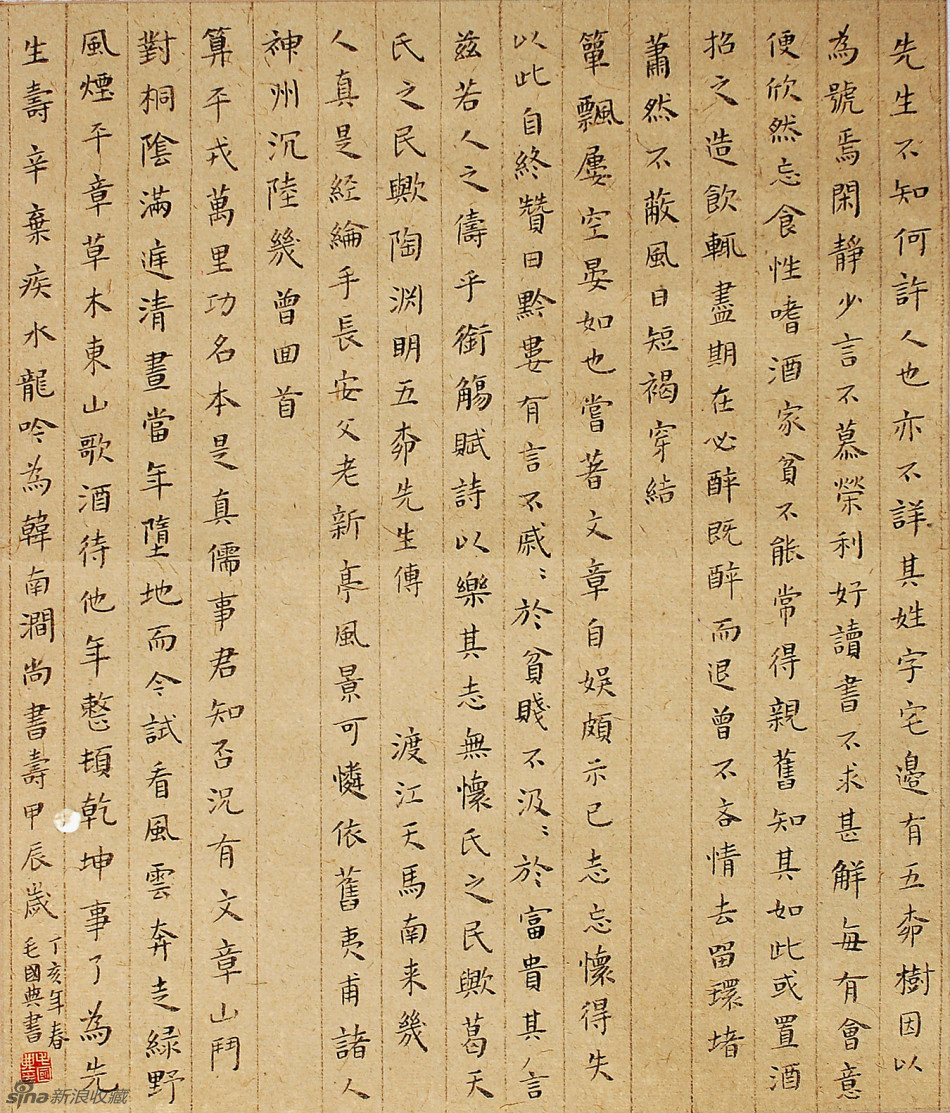 先生不知何許人也亦不詳其姓字宅邊有五桺樹因以
為號焉閑靜少言不慕榮利好讀書不求甚解每有會意
便欣然忘食性嗜酒家貧不能常得親舊知其如此或置酒
招之造飲輒盡期在必醉既醉而退曾不吝情去留環堵
蕭然不蔽風日短褐穿結
簞飄屢空晏如也嘗著文章自娛頗示己志忘懷得失
以此自終贊曰黔婁有言不戚〻於貧賤不汲〻於富貴其言
茲若人之儔乎銜觴賦詩以樂其志無懷氏之民歟葛天
氏之民歟陶淵明五桺先生傳 渡江天馬南来幾
人真是經綸手長安父老新亭風景可憐依舊夷甫諸人
神州沉陸幾曾回首
算平戎萬里功名本是真儒事君知否況有文章山鬥
對桐陰滿庭清晝當年墮地而今試看風雲奔走綠野
風煙平章草木東山歌酒待他年整頓乾坤事了為先
生壽辛棄疾水龍吟為韓南澗尚書壽甲辰歲
丁亥年春
毛國典書
sina新浪收藏